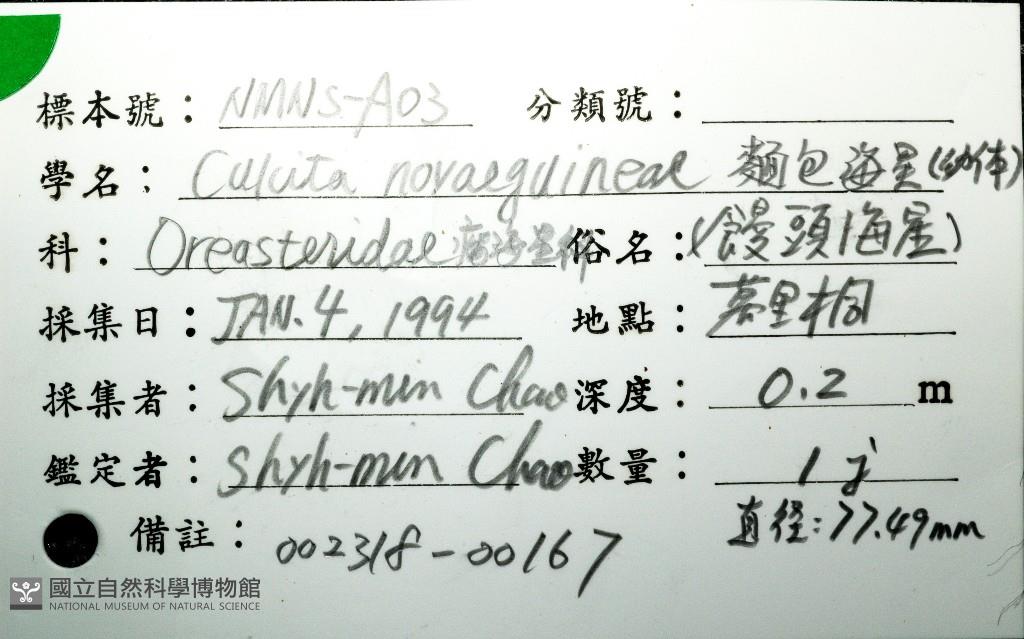 標本號： NMNS-A03 分類號：
學名： Culcita novaeguineae 麵包海星(幼体)
科： Oreasteridae 瘤海星科 俗名： (饅頭海星)
採集日： JAN. 4, 1994 地點： 萬里桐
採集者： Shyh-min Chao 深度： 0.2 m
鑑定者： Shyh-min Chao 數量： 1 j
直徑: 77.49mm
備註： 002318-00167
國立自然科學博物館
NATIONAL MUSEUM OF NATURAL SCIENCE